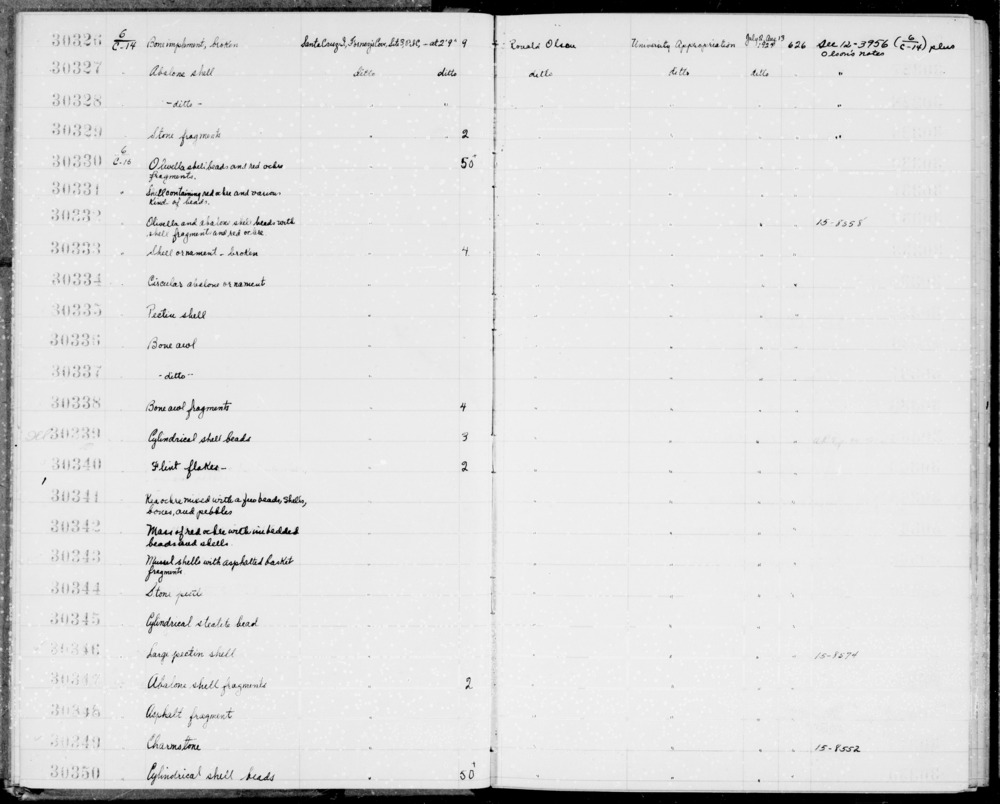 30326 6/C-14 Bone implement, broken Santa Cruz I, Site 3, - at 2'9" 9 Ronald Olson University Appropriation July 8, Aug 13 1927 626 See 12-3956 (6/C-14) plus
Olson's notes
30327 " Abalone shell ditto ditto ditto ditto ditto "
30328 - ditto - " " " " " "
30329 Stone fragments " 2 " " " "
30330 6/C-15 Olivella shell beads and red ochre 50+
fragments.
30331 " Shell containing red ochre and various
kind of beads.
30332 " Olivella and abalone shell beads with 15-8558
shell fragment and red ochre
30333 " Shell ornament - broken " 4
30334 Circular abalone ornament "
30335 Pectin shell "
30336 Bone awl "
30337 - ditto - "
30338 Bone awl fragments " 4
30339 Cylindrical shell beads " 3
30340 Flint flakes - " 2
30341 Red ochre mixed with a few beads, shells,
bones, and pebbles
30342 Mass of red ochre with imbedded
beads and shells
30343 Mussel shells with asphalted basket
fragments
30344 Stone "
30345 Cylindrical steatite bead "
30346 Large pectin shell " 15-8574
30347 Abalone shell fragments " 2
30348 Asphalt fragment "
30349 Charmstone " 15-8552
30350 Cylindrical shell beads " 50+